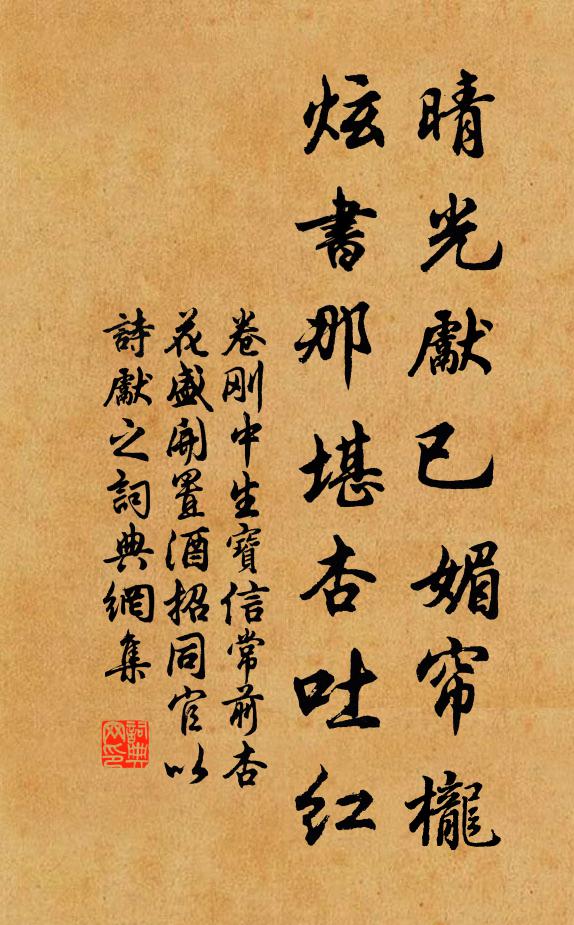 晴光獻已媚帘櫳
炫書那堪杏吐红
卷刚中生寶信常前杏
花盛開置酒招同官以
詩獻之詞典網集
詞典網印